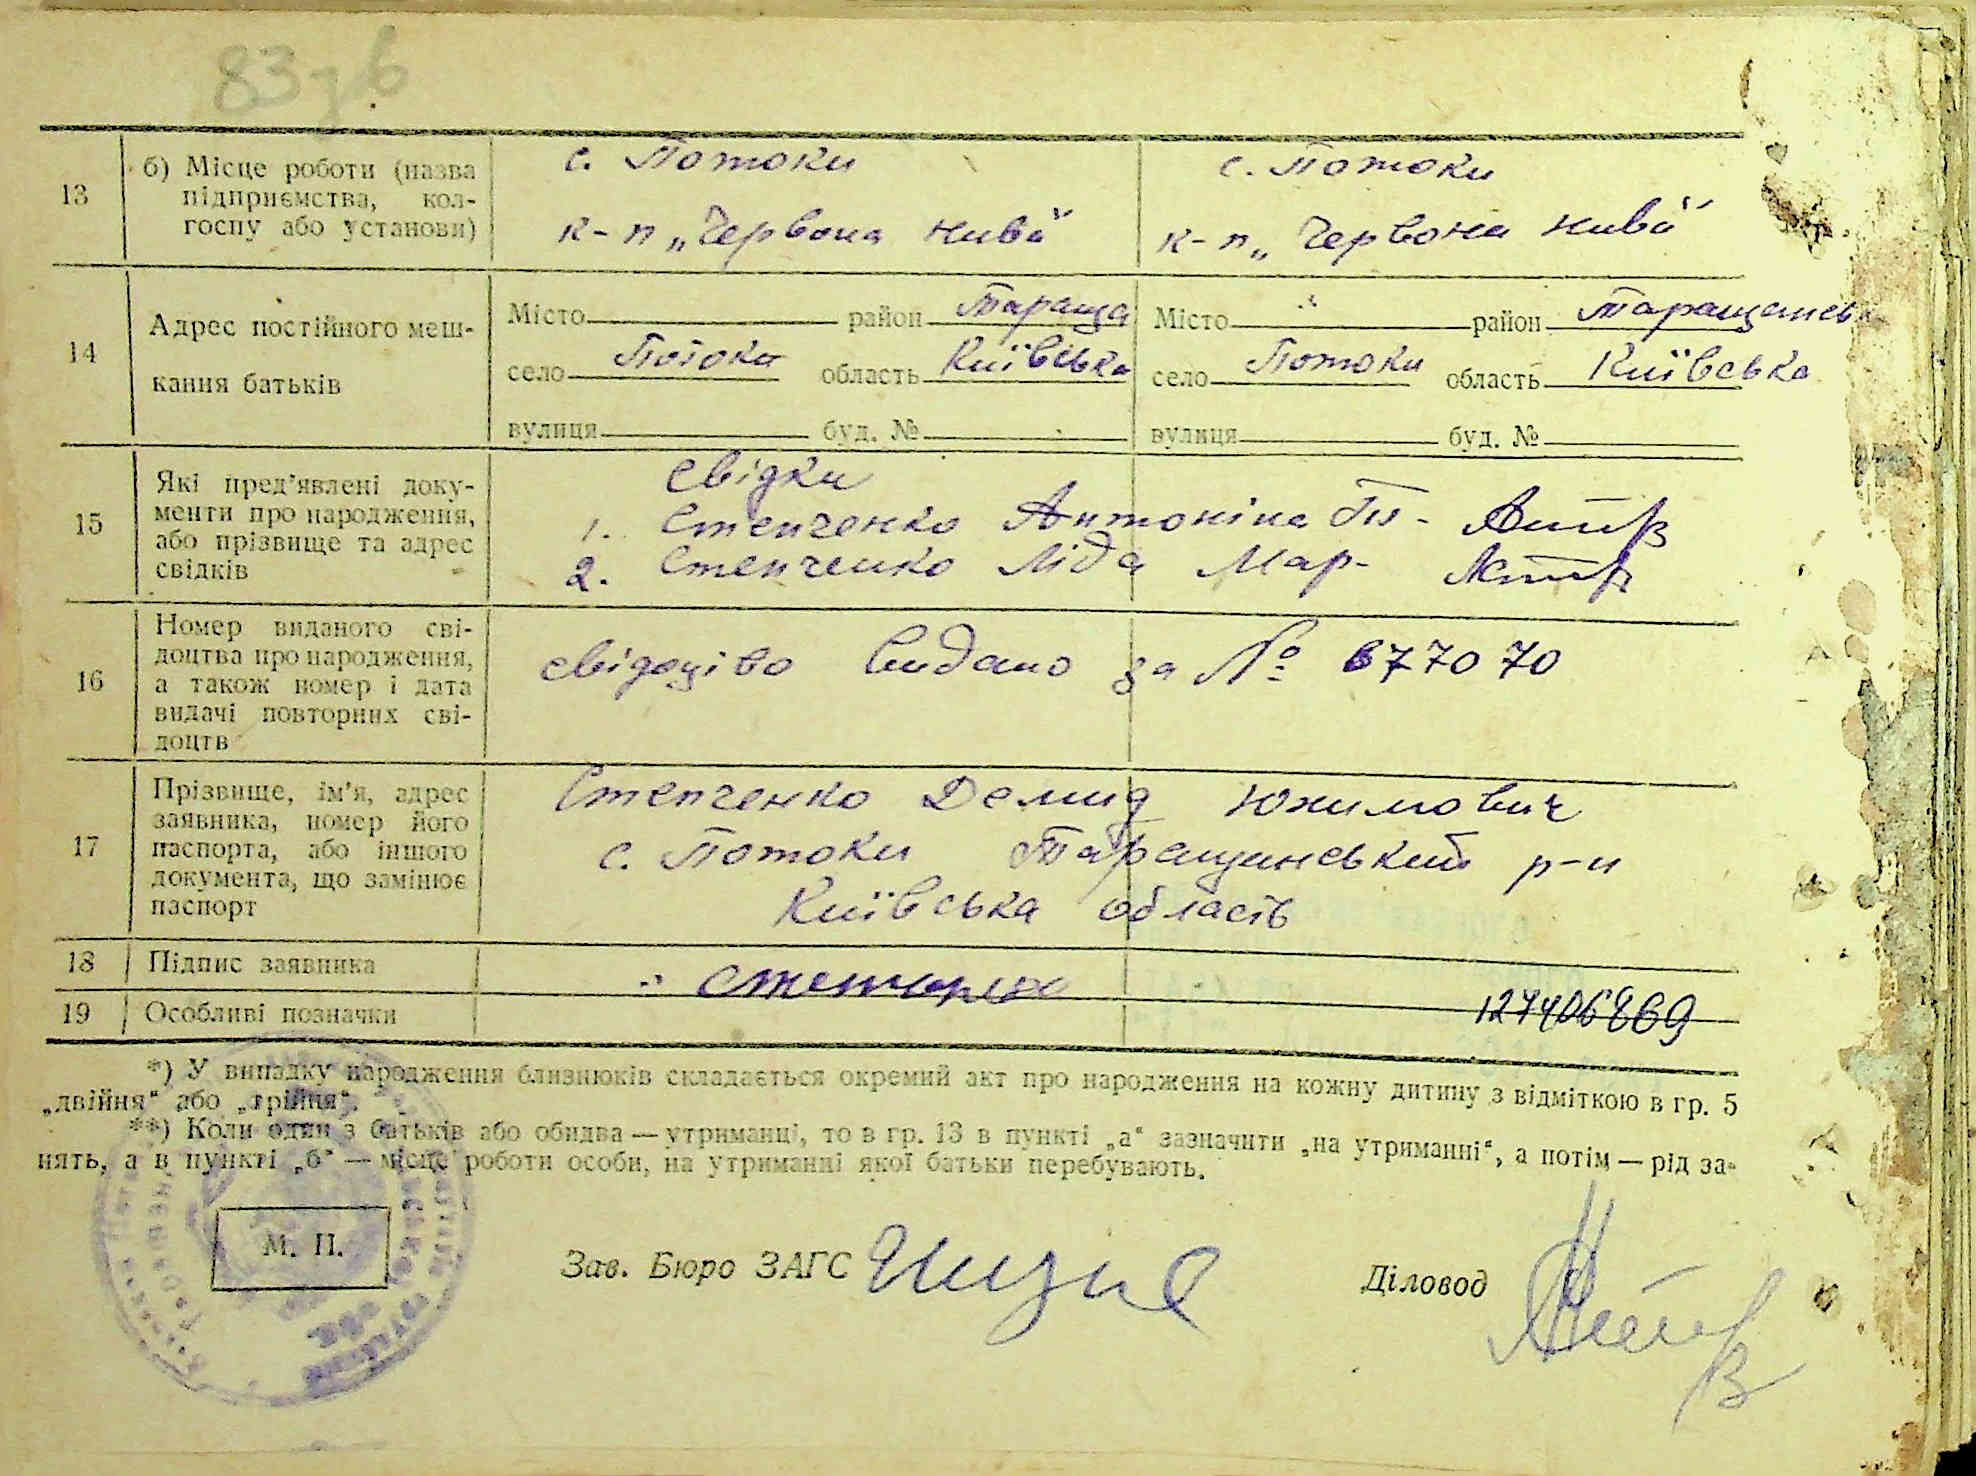 83
13
б) Місце роботи (назва
підприємства, кол-
госпу або установи)
с. Потоки
к-п „Червона нива"
с. Потоки
к-п „Червона нива"
14
Адрес постійного меш-
кання батьків
Місто район Тараща
село Потоки область Київська
вулиця буд. №
Місто район Таращанськ
село Потоки область Київська
вулиця буд. №
15
Які пред'явлені доку-
менти про народження,
або прізвище та адрес
свідків
свідки
1. Степченко Антоніна
2. Степченко Ліда Мар-
16
Номер виданого сві-
доцтва про народження,
а також номер і дата
видачі повторних сві-
доцтв
свідоцтво видано за № 677070
17
Прізвище, ім'я, адрес
заявника, номер його
паспорта, або іншого
документа, що замінює
паспорт
Степченко Демид Юхимович
с. Потоки Таращанський р-н
Київська область
18
Підпис заявника
19
Особливі позначки
*) У випадку народження близнюків складається окремий акт про народження на кожну дитину з відміткою в гр. 5
„двійня" або „трійня".
**) Коли один з батьків або обидва — утриманці, то в гр. 13 в пункті „а" зазначити „на утриманні", а потім — рід за-
нять, а в пункті „б" — місце роботи особи, на утриманні якої батьки перебувають.
М. П.
Зав. Бюро ЗАГС
Діловод